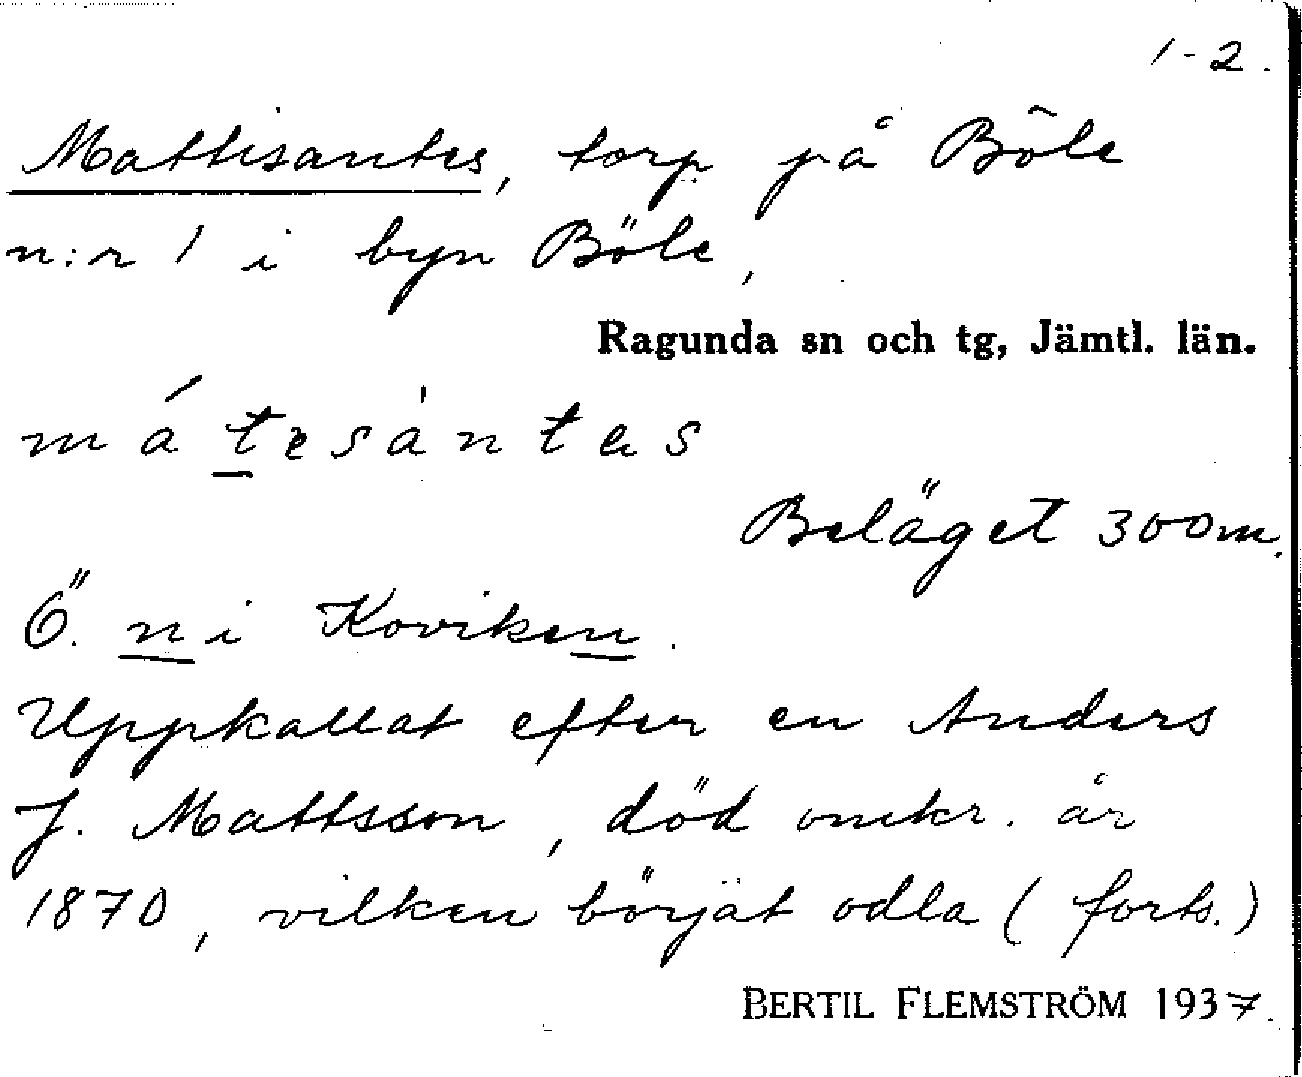 1-2.
Mattisantes, torp på Böle
n:r 1 i byn Böle,
Ragunda sn och tg, Jämtl. län.
má tesàntes
Beläget 300m.
Ö. n i Koviken.
Uppkallat efter en Anders
J. Mattsson, död omkr. år
1870, vilken börjat odla (forts.)
BERTIL FLEMSTRÖM 1937.